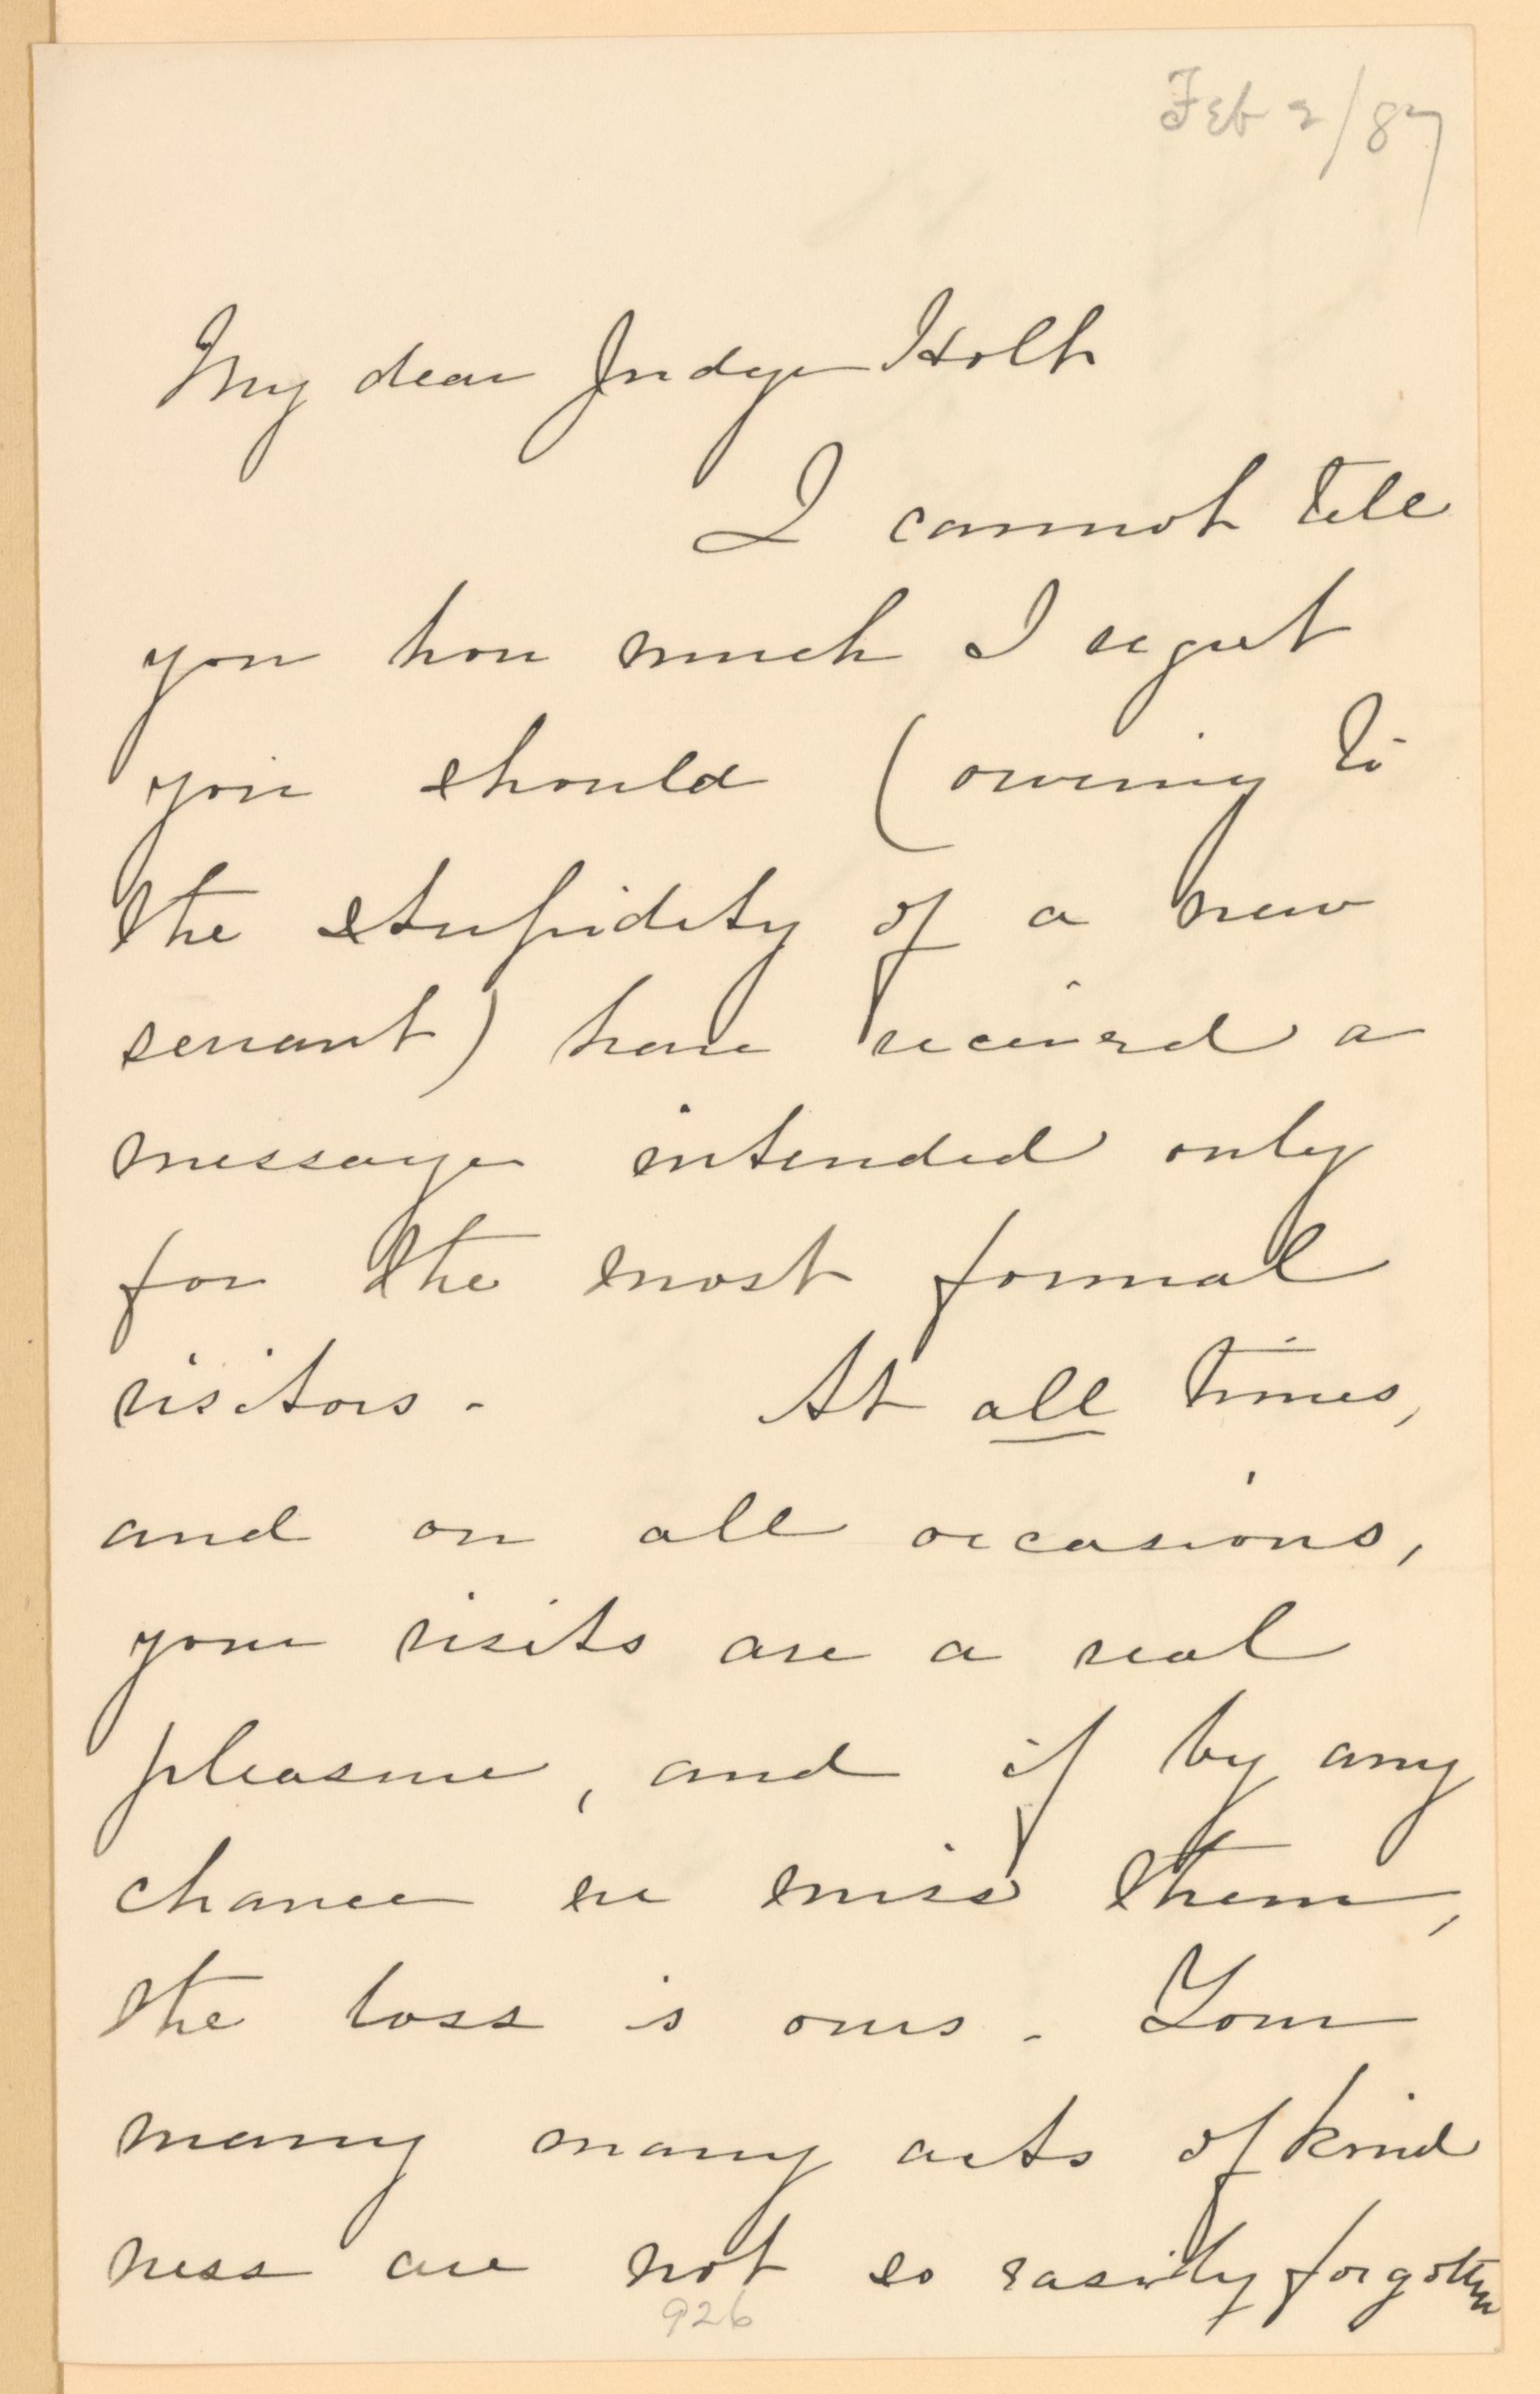 Feb 2/87
My dear Judge Holt
I cannot tell
you how much I regret
you should (owing to
the stupidity of a new
servant) have received a
message intended only
for the most formal
visitors - At all times,
and on all occasions,
your visits are a real
pleasure, and if by any
chance we miss them,
the loss is ours - Your
many many acts of kind
ness are not so easily forgotten
926